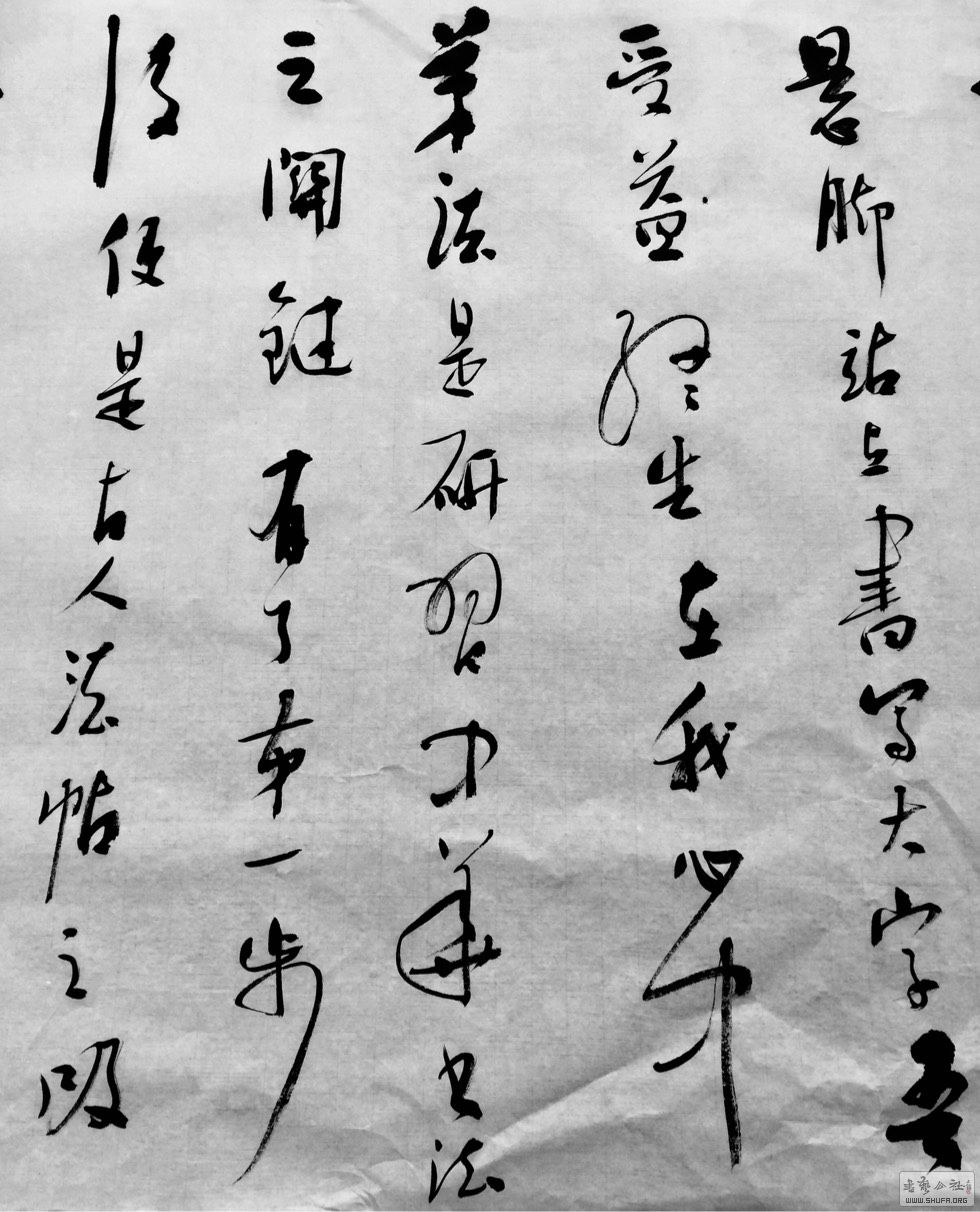 悬脚站立書写大字吾
受益终生在我心中
筆法是研習中華书法
之關鍵有了第一步
後便是古人法帖之吸
書藝公社
WWW.SHUFA.ORG